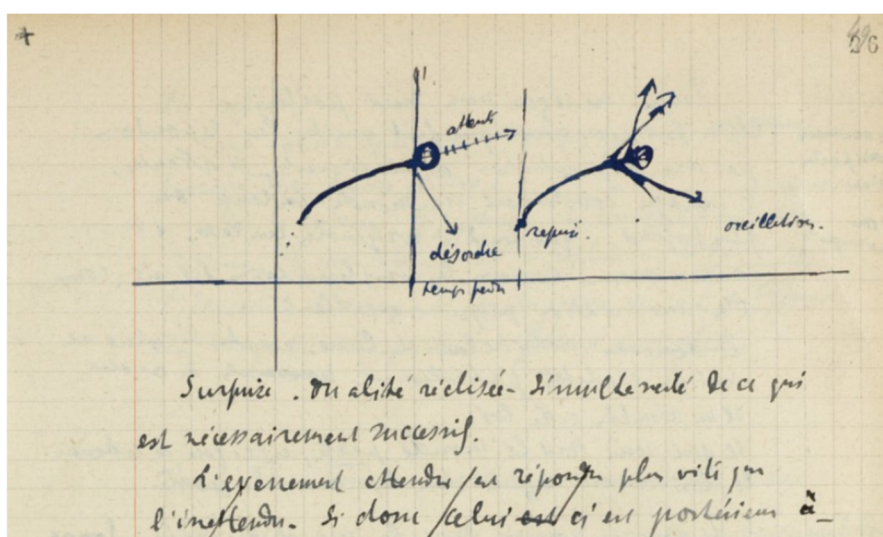 26
attente
désordre
temps perdu
reprise.
oscillations.
Surprise. Dualité réalisée - Simultanéité de ce qui
est nécessairement successif.
L'evenement attendu est répondu plus vite que
l'inattendu. Si donc celui est ci est postérieur à